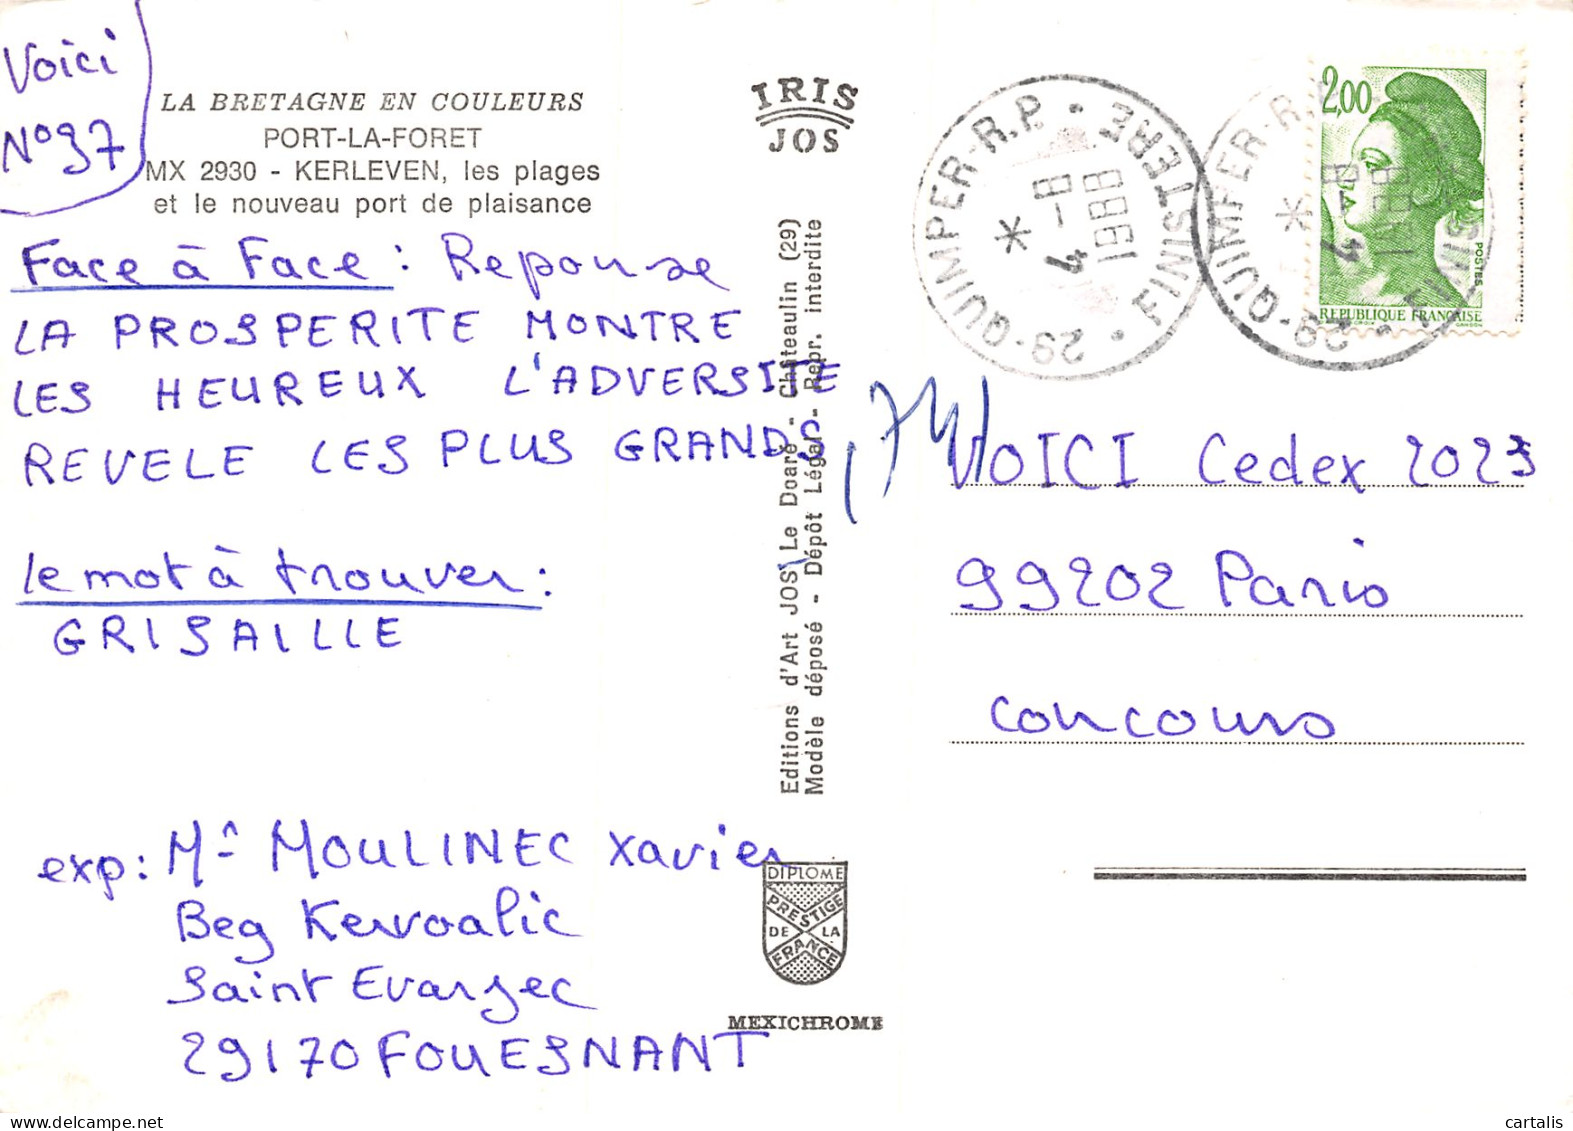 Voici
N° 97
LA BRETAGNE EN COULEURS
PORT-LA-FORET
MX 2930 - KERLEVEN, les plages
et le nouveau port de plaisance
Face à Face : Reponse
LA PROSPERITE MONTRE
LES HEUREUX L'ADVERSITE
REVELE LES PLUS GRANDS
le mot à trouver :
GRISAILLE
exp: Mr MOULINEC Xavier
Beg Kervoalic
Saint Evarzec
29170 FOUESNANT
IRIS
JOS
Editions d'Art JOS Le Doaré - Châteaulin (29)
Modèle déposé - Dépôt Légal - Repr. interdite
DIPLOME
PRESTIGE
DE LA
FRANCE
MEXICHROME
29-QUIMPER-R.P. • FINISTERE •
4 - 8
1988
29-QUIMPER-R.
2,00
POSTES
REPUBLIQUE FRANÇAISE
VOICI Cedex 2023
99202 Paris
concours
cartalis